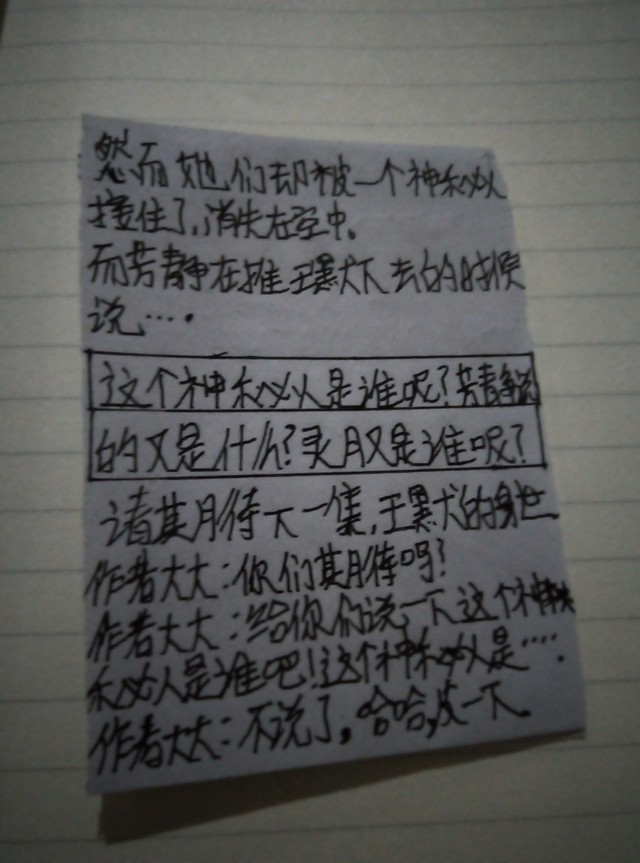 然而她们却被一个神秘人
接住了,消失在空中。
而芳静在推王默犬下去的时候
说….
这个神秘人是谁呢?芳静说
的又是什么?灵月又是谁呢?
请期待下一集,王黑犬的身世
作者大大:你们期待吗?
作者大大:给你们说一下这个神
秘人是谁吧!这个神秘人是….
作者大大:不说了,哈哈,皮一下